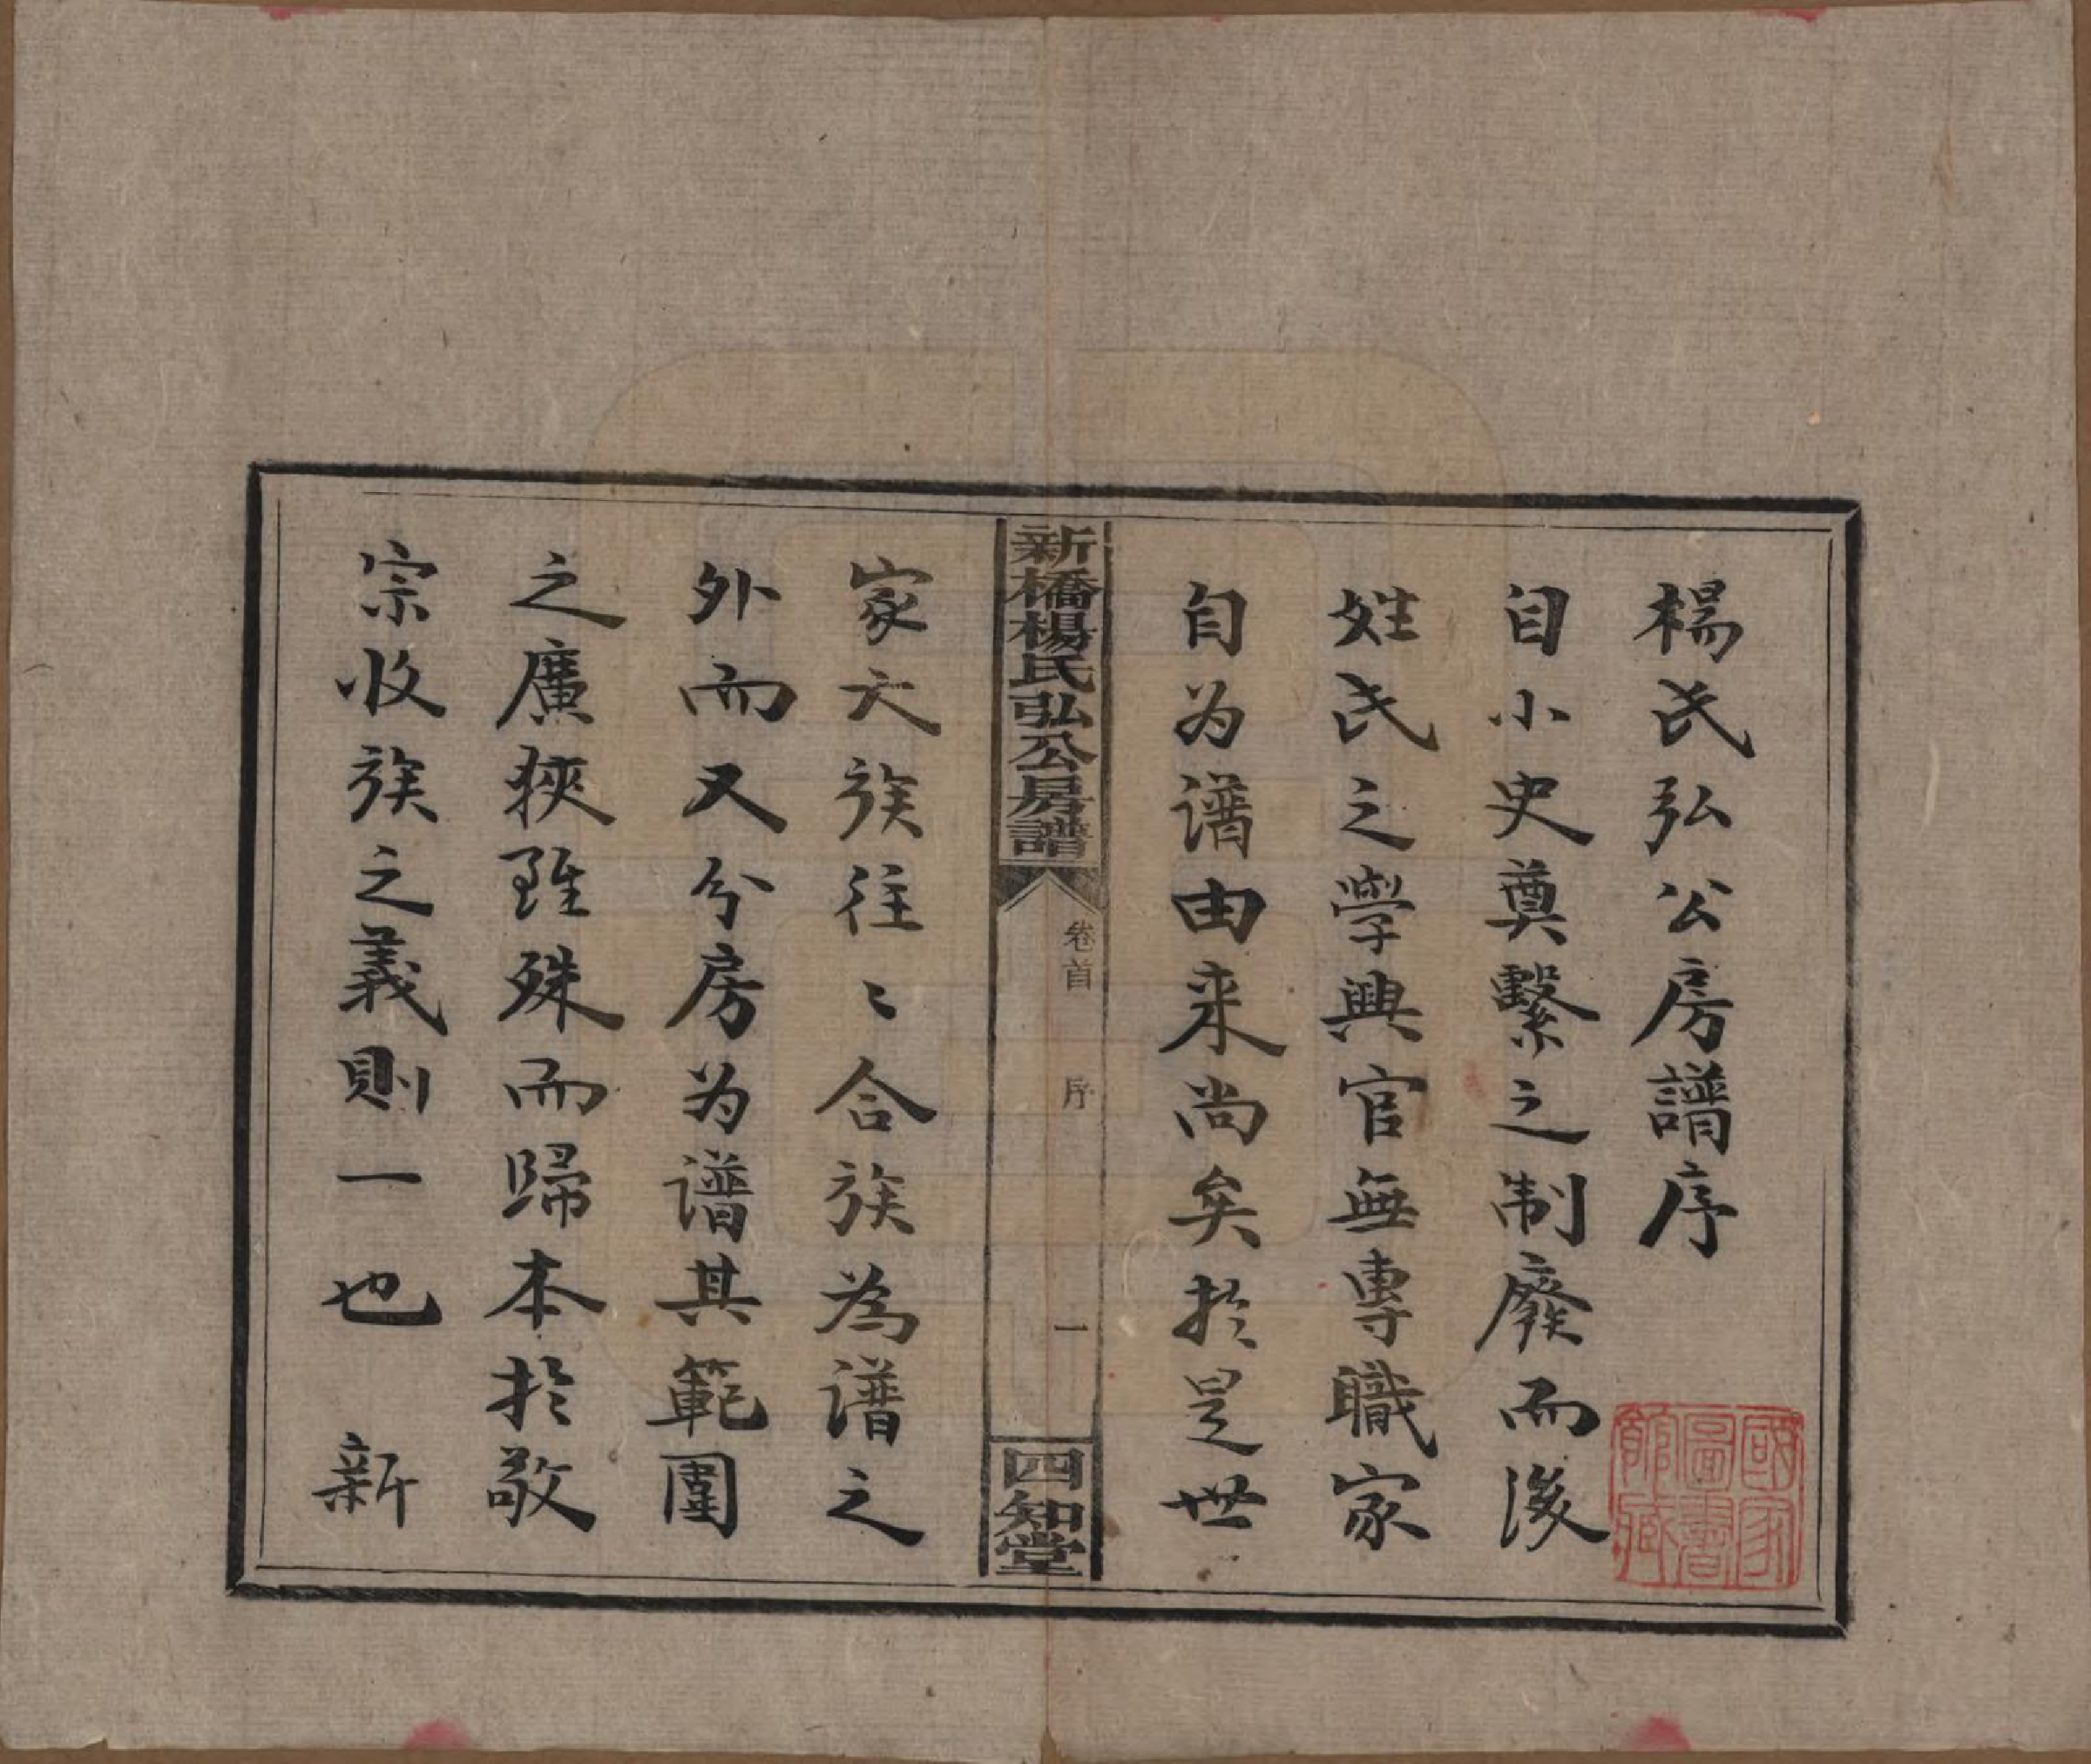 楊氏弘公房譜序
自小史奠繫之制廢而後
姓氏之學興官無專職家
自为谱由来尚矣於是世
新橋楊氏弘公房譜
卷首
序
一
四知堂
家大族往〻合族為谱之
外而又分房为谱其範圍
之廣狹雖殊而歸本於敬
宗收族之義則一也 新
國家
圖書
館藏